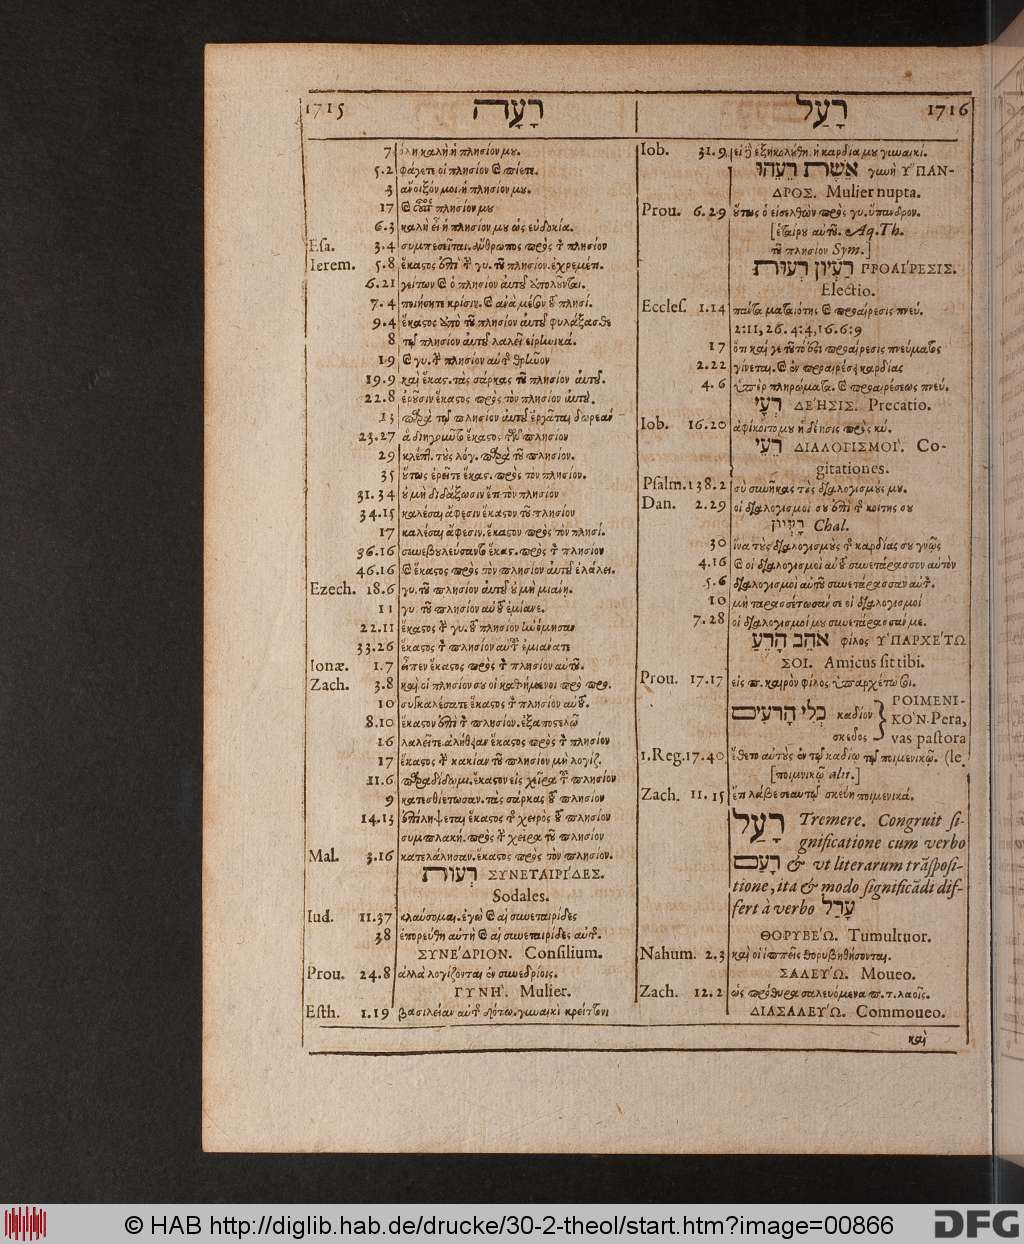 1715 רָעָה
רָעַל 1716
7 ὅλη καλὴ ἡ πλησίον μȣ.
5.2 φάγετε οἱ πλησίον καὶ πίετε.
3 ἄνοιξόν μοι ἡ πλησίον μȣ.
17 πλησίον μȣ
6.3 καλὴ εἶ ἡ πλησίον μȣ ὡς εὐδοκία.
Esa. 3.4 συμπεσεῖται. ἄνθρωπος πρὸς τ πλησίον
Ierem. 5.8 ἕκαστος ἐπὶ τ γυ. τοῦ πλησίον. ἐχρεμέτ.
6.21 γείτων καὶ ὁ πλησίον αὐτοῦ ἀπολοῦνται.
7.4 ποιήσητε κρίσιν. καὶ ἀνὰ μέσον πλησί.
9.4 ἕκαστος ἀπὸ τοῦ πλησίον αὐτοῦ φυλάξασθε
8 τῷ πλησίον αὐτοῦ λαλεῖ εἰρηνικά.
19 καὶ γυ. τ πλησίον αὐτ θρῆνον
19.9 καὶ ἕκας. τὰς σάρκας τοῦ πλησίον αὐτοῦ.
22.8 ἐροῦσιν ἕκαστος πρὸς τὸν πλησίον αὐτοῦ.
13 παρὰ τῷ πλησίον αὐτοῦ ἐργᾶται δωρεὰν
23.27 ἃ διηγοῦντο ἕκαστος τῷ πλησίον
29 κλέπτ. τοὺς λόγ. παρὰ τοῦ πλησίον.
35 οὕτως ἐρεῖτε ἕκας. πρὸς τὸν πλησίον.
31.34 οὐ μὴ διδάξωσιν ἕπ τὸν πλησίον
34.15 καλέσαι ἄφεσιν ἕκαστον τοῦ πλησίον
17 καλέσαι ἄφεσιν. ἕκαστον πρὸς τὸν πλησί.
36.16 συνεβουλεύσαντο ἕκας. πρὸς τ πλησίον
46.16 καὶ ἕκαστος πρὸς τὸν πλησίον αὐτοῦ ἐλάλει.
Ezech. 18.6 γυ. τοῦ πλησίον αὐτοῦ οὐ μὴ μιαίνῃ.
11 γυ. τοῦ πλησίον αὐτοῦ ἐμίανε.
22.11 ἕκαστος τ γυ. πλησίον ἠνόμησαν
33.26 ἕκαστος τ πλησίον αὐτ ἐμιάνατε
Ionæ. 1.7 εἶπεν ἕκαστος πρὸς τ πλησίον αὐτοῦ.
Zach. 3.8 καὶ οἱ πλησίον σου οἱ καθήμενοι πρὸ προ.
10 συγκαλέσατε ἕκαστος τ πλησίον αὐτοῦ.
8.10 ἕκαστον ἐπὶ τ πλησίον. ἐξαποστελῶ
16 λαλεῖτε ἀλήθειαν ἕκαστος πρὸς τ πλησίον
17 ἕκαστος τ κακίαν τοῦ πλησίον μὴ λογίζ.
11.6 παραδίδωμι. ἕκαστον εἰς χεῖρα πλησίον
9 κατεσθιέτωσαν. τὰς σάρκας πλησίον
14.13 ἐπιλήψεται ἕκαστος τ χειρὸς πλησίον
συμπλακή. πρὸς τ χεῖρα τοῦ πλησίον
Mal. 3.16 κατελάλησαν. ἕκαστος πρὸς τὸν πλησίον.
רְעוּת ΣΥΝΕΤΑΙΡΙΔΕΣ.
Sodales.
Iud. 11.37 κλαύσομαι. ἐγὼ καὶ αἱ συνεταιρίδες
38 ἐπορεύθη αὐτὴ καὶ αἱ συνεταιρίδες αὐτ.
ΣΥΝΕ΄ΔΡΙΟΝ. Consilium.
Prou. 24.8 ἀλλὰ λογίζονται ἐν συνεδρίοις.
ΓΥΝΗ΄. Mulier.
Esth. 1.19 βασιλείαν αὐτ δότω. γυναικὶ κρείττονι
Iob. 31.9 εἰ ἐξηκολούθη. ἡ καρδία μου γυναικί.
אֵשֶׁת רֵעֵהוּ γυνὴ ΥΠΑΝ-
ΔΡΟΣ. Mulier nupta.
Prou. 6.29 οὕτως ὁ εἰσελθὼν πρὸς γυ. ὕπανδρον.
[ἑταίρου αὐτοῦ. Aq. Th.
τοῦ πλησίον Sym.]
רַעְיוֹן רְעוּת ΠΡΟΑΙ΄ΡΕΣΙΣ.
Electio.
Eccles. 1.14 πάντα ματαιότης καὶ προαίρεσις πνεύ.
2:11, 26. 4:4, 16. 6:9
17 ὅτι καί γε τοῦτό ἐστι προαίρεσις πνεύματος
2.22 γίνεται. καὶ ἐν προαιρέσει καρδίας
4.6 ὑπὲρ πληρώματα. καὶ προαιρέσεως πνεύ.
רְעִי ΔΕ΄ΗΣΙΣ. Precatio.
Iob. 16.20 ἀφίκοιτό μου ἡ δέησις πρὸς κύ.
רֵעִי ΔΙΑΛΟΓΙΣΜΟΙ΄. Co-
gitationes.
Psalm. 138.2 σὺ συνῆκας τοὺς διαλογισμούς μου.
Dan. 2.29 οἱ διαλογισμοὶ σου ἐπὶ τ κοίτης σου
רַעְיוֹן Chal.
30 ἵνα τοὺς διαλογισμοὺς τ καρδίας σου γνῷς
4.16 καὶ οἱ διαλογισμοὶ αὐτοῦ συνετάρασσον αὐτὸν
5.6 διαλογισμοὶ αὐτοῦ συνετάρασσαν αὐτ.
10 μὴ ταρασσέτωσάν σε οἱ διαλογισμοί
7.28 οἱ διαλογισμοί μου συνετάρασσάν με.
אֹהֵב הָרֵעַ φίλος ΥΠΑΡΧΕ΄ΤΩ
ΣΟΙ. Amicus sit tibi.
Prou. 17.17 εἰς π. καιρὸν φίλος ὑπαρχέτω σοι.
כְּלִי הָרֹעִים καδίον } ΠΟΙΜΕΝΙ-
ΚΟ΄Ν. Pera,
σκεῦος vas pastora
1. Reg. 17.40 ἔθετο αὐτοὺς ἐν τῷ καδίῳ τῷ ποιμενικῷ. (le,
[ποιμνικῷ alit.]
Zach. 11.15 ἔπ λάβε σεαυτῷ σκεύη ποιμενικά.
רָעַל Tremere. Congruit si-
gnificatione cum verbo
רָעַם & vt literarum trãsposi-
tione, ita & modo significãdi dif-
fert à verbo עָרַל
ΘΟΡΥΒΕ΄Ω. Tumultuor.
Nahum. 2.3 καὶ οἱ ἱππεῖς θορυβηθήσονται.
ΣΑΛΕΥ΄Ω. Moueo.
Zach. 12.2 ὡς πρόθυρα σαλευόμενα π. τ. λαοῖς.
ΔΙΑΣΑΛΕΥ΄Ω. Commoueo.
καὶ
© HAB http://diglib.hab.de/drucke/30-2-theol/start.htm?image=00866
DFG